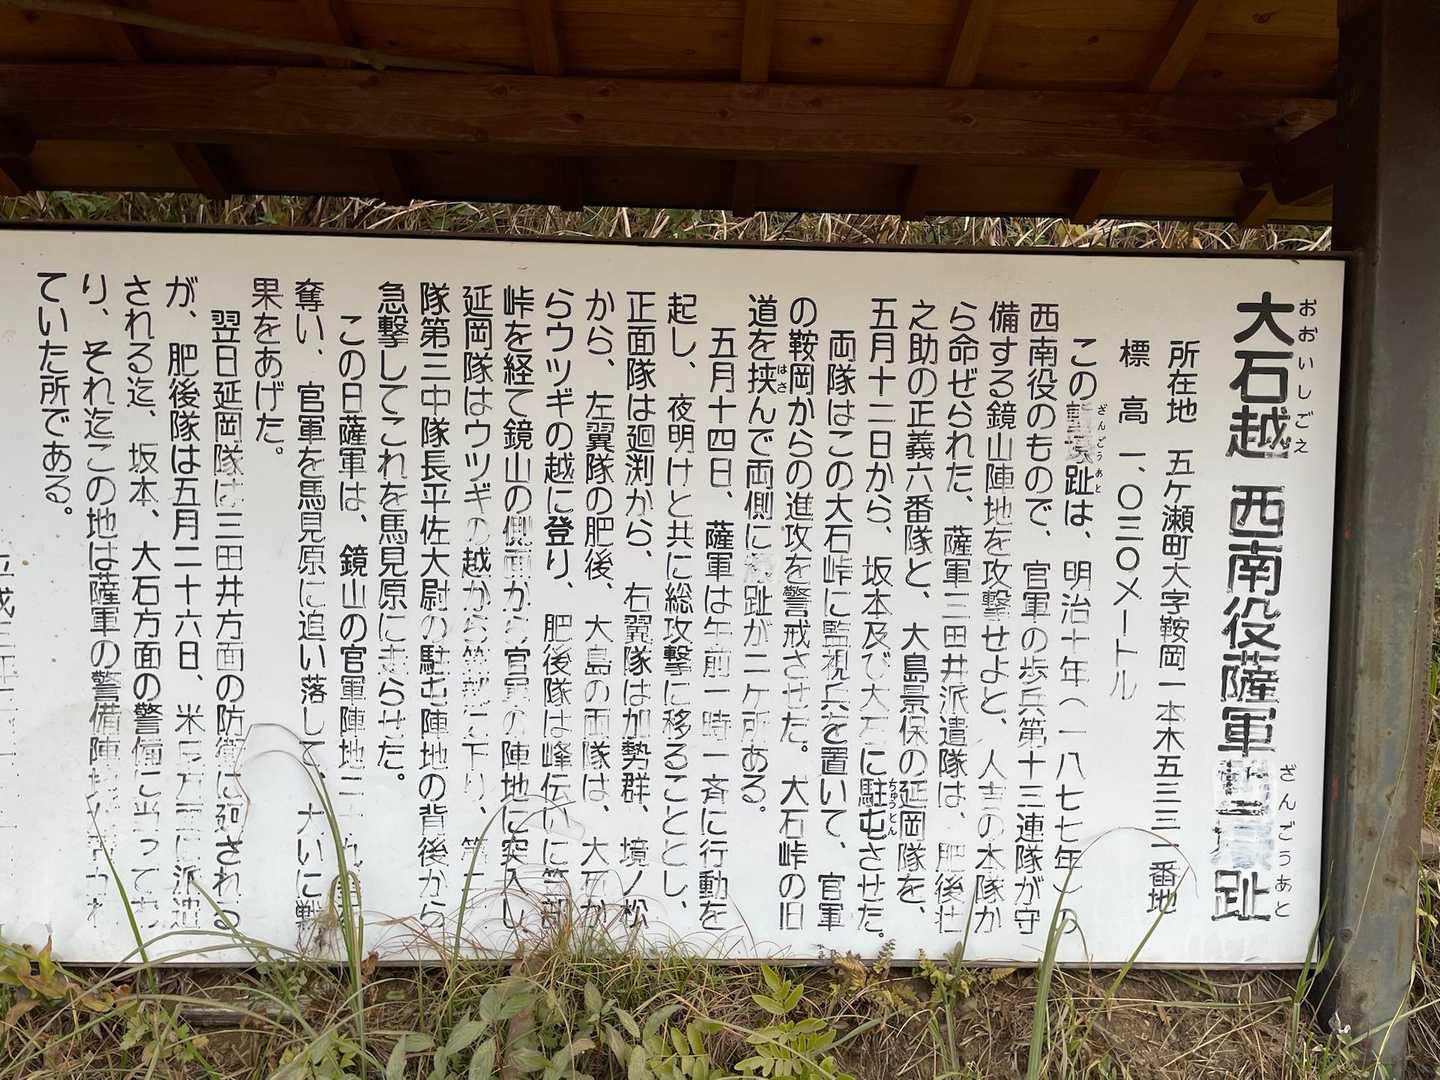 大石越 西南役薩軍塹壕趾
おおいしごえ
ざんごうあと
所在地 五ケ瀬町大字鞍岡一本木五三三一番地
標高 一、〇三〇メートル
この塹壕趾は、明治十年(一八七七年)の
ざんごうあと
西南役のもので、官軍の歩兵第十三連隊が守
備する鏡山陣地を攻撃せよと、人吉の本隊か
ら命ぜられた、薩軍三田井派遣隊は、肥後壮
之助の正義六番隊と、大島景保の延岡隊を、
五月十二日から、坂本及び大石に駐屯させた。
ちゅうとん
両隊はこの大石峠に監視兵を置いて、官軍
の鞍岡からの進攻を警戒させた。大石峠の旧
道を挟んで両側に 趾が二ケ所ある。
はさ
五月十四日、薩軍は午前一時一斉に行動を
起し、夜明けと共に総攻撃に移ることとし、
正面隊は廻渕から、右翼隊は加勢群、境ノ松
から、左翼隊の肥後、大島の両隊は、大石か
らウツギの越に登り、肥後隊は峰伝いに笠部
峠を経て鏡山の側面から官軍の陣地に突入し
延岡隊はウツギの越から 下り、第二
隊第三中隊長平佐大尉の駐屯陣地の背後から
急撃してこれを馬見原に走らせた。
この日薩軍は、鏡山の官軍陣地二十九
奪い、官軍を馬見原に追い落して、大いに戦
果をあげた。
翌日延岡隊は三田井方面の防衛に廻される
が、肥後隊は五月二十六日、米良方面に派遣
される迄、坂本、大石方面の警備に当ってお
り、それ迄この地は薩軍の警備陣地が
ていた所である。